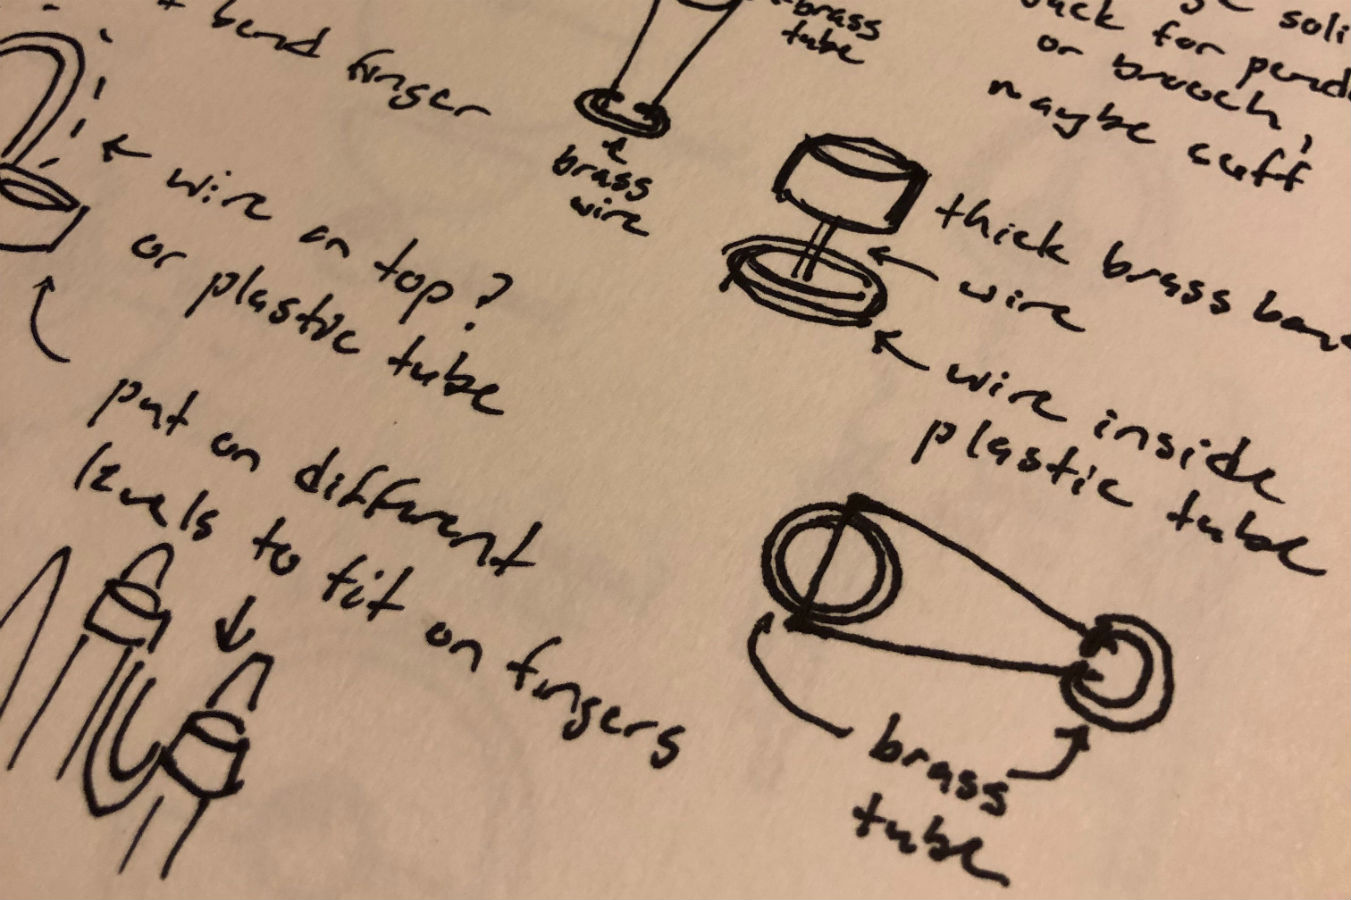 bend finger
wire on top?
or plastic tube
put on different
levels to fit on fingers
brass
tube
brass
wire
soli
back for pend
or brooch,
maybe cuff
thick brass ban
wire
wire inside
plastic tube
brass
tube